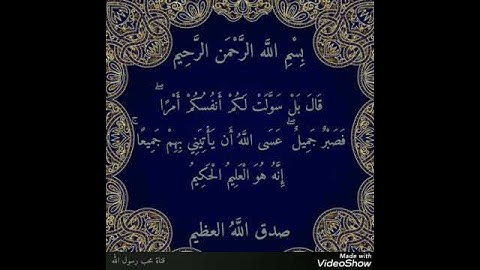 بِسْمِ اللَّه الرَّحْمَن الرَّحِيم
قَالَ بَلْ سَوَّلَتْ لَكُمْ أَنفُسُكُمْ أَمْرًا ۖ
فَصَبْرٌ جَمِيلٌ ۖ عَسَى اللَّهُ أَن يَأْتِيَنِي بِهِمْ جَمِيعًا ۚ
إِنَّهُ هُوَ الْعَلِيمُ الْحَكِيمُ
صدق اللَّهُ العظيم
قناة محب رسول الله
Made with
VideoShow